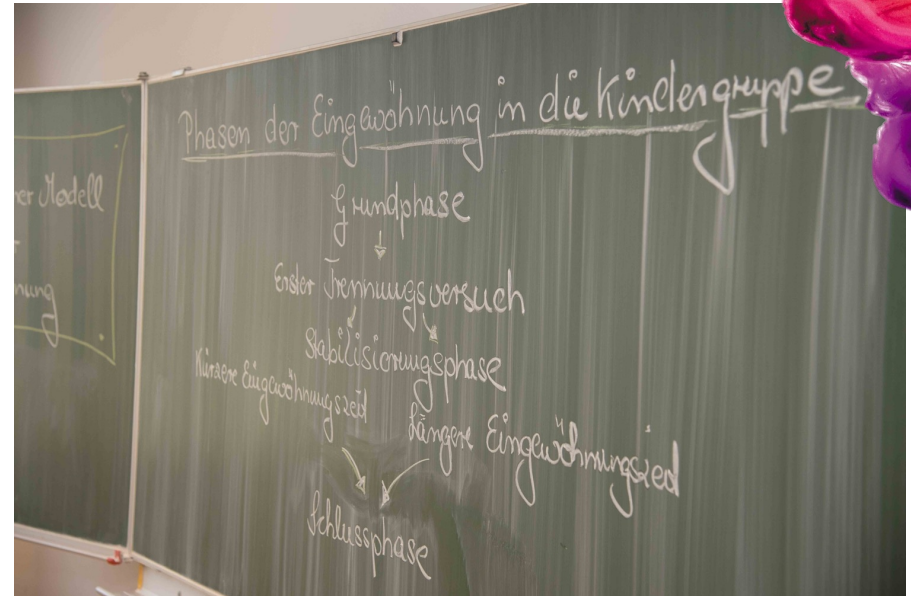 Modell
Phasen der Eingewöhnung in die Kindergruppe
Grundphase
Erster Trennungsversuch
Stabilisierungsphase
Kürzere Eingewöhnungszeit
Längere Eingewöhnungszeit
Schlussphase